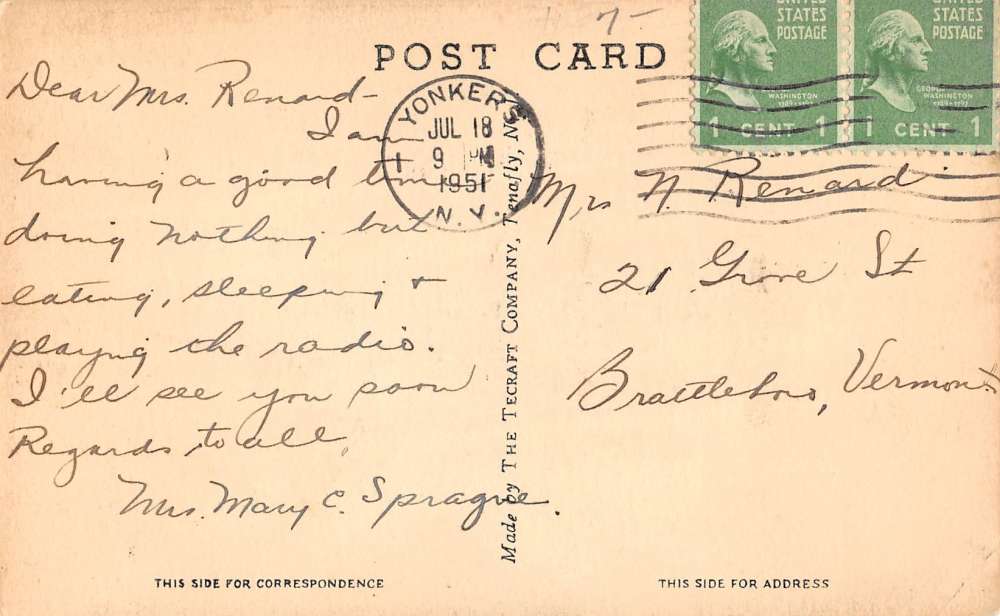 7-
POST CARD
UNITED STATES POSTAGE
GEORGE WASHINGTON
1789-1797
1 CENT 1
UNITED STATES POSTAGE
GEORGE WASHINGTON
1789-1797
1 CENT 1
YONKERS
JUL 18
9 PM
1951
N.Y.
1
Dear Mrs. Renard-
I am
having a good time
doing nothing but
eating, sleeping +
playing the radio.
I'll see you soon
Regards to all.
Mrs. Mary C. Sprague.
Made by THE TECRAFT COMPANY, Tenafly, N
Mrs N. Renard
21 Grove St
Brattleboro, Vermont
THIS SIDE FOR CORRESPONDENCE
THIS SIDE FOR ADDRESS